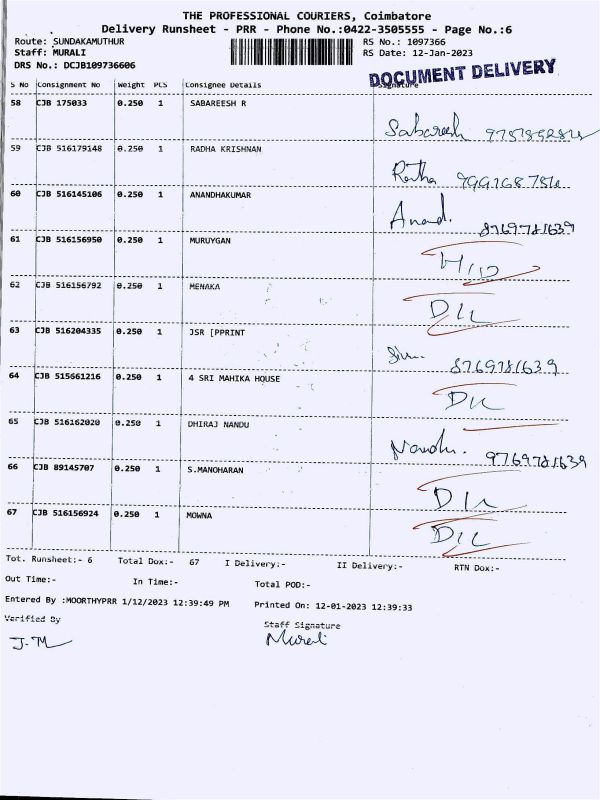 THE PROFESSIONAL COURIERS, Coimbatore
Delivery Runsheet - PRR - Phone No.:0422-3505555 - Page No.:6
Route: SUNDAKAMUTHUR
RS No.: 1097366
Staff: MURALI
RS Date: 12-Jan-2023
DRS No.: DCJB109736606
DOCUMENT DELIVERY
S No Consignment No Weight PCS Consignee Details Signature
58 CJB 175033 0.250 1 SABAREESH R
Sabareesh
59 CJB 516179148 0.250 1 RADHA KRISHNAN
Ratha
60 CJB 516145106 0.250 1 ANANDHAKUMAR
Anand. 8769781639
61 CJB 516156950 0.250 1 MURUYGAN
62 CJB 516156792 0.250 1 MENAKA
D/L
63 CJB 516204335 0.250 1 JSR [PPRINT
8769781639
64 CJB 515661216 0.250 1 4 SRI MAHIKA HOUSE
D/L
65 CJB 516162020 0.250 1 DHIRAJ NANDU
Nandu. 9769781639
66 CJB 89145707 0.250 1 S.MANOHARAN
D/L
67 CJB 516156924 0.250 1 MOWNA
D/L
Tot. Runsheet:- 6 Total Dox:- 67 I Delivery:- II Delivery:- RTN Dox:-
Out Time:- In Time:- Total POD:-
Entered By :MOORTHYPRR 1/12/2023 12:39:49 PM Printed On: 12-01-2023 12:39:33
Verified By Staff Signature
J.M Murali